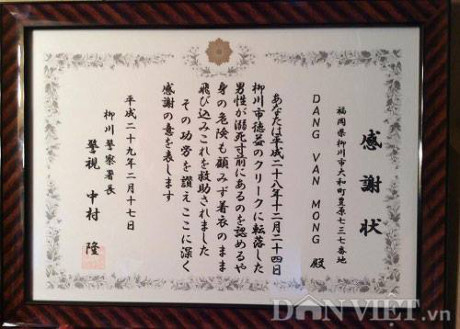 感謝状
福岡県柳川市大和町豊原七三七番地
DANG VAN MONG 殿
あなたは平成二十八年十二月二十四日
柳川市徳益のクリークに転落した
男性が溺死寸前にあるのを認めるや
身の危険も顧みず着衣のまま
飛び込みこれを救助されました
その功労を讃えここに深く
感謝の意を表します
平成二十九年二月十七日
柳川警察署長
警視 中村 隆
DANVIET.vn